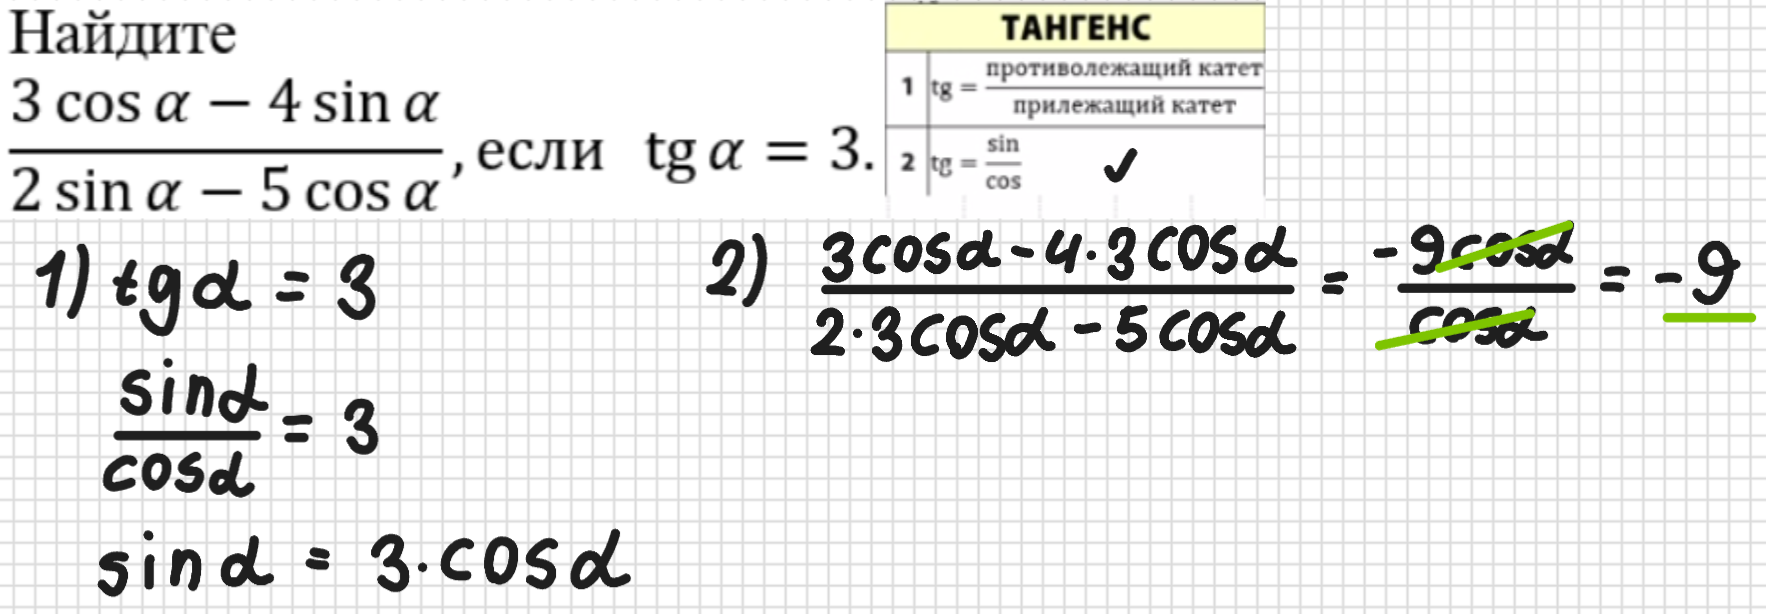 Найдите
(3 cos α − 4 sin α)/(2 sin α − 5 cos α), если tg α = 3.
ТАНГЕНС
1 tg = противолежащий катет/прилежащий катет
2 tg = sin/cos ✓
1) tg α = 3
sin α/cos α = 3
sin α = 3 · cos α
2) (3 cos α − 4 · 3 cos α)/(2 · 3 cos α − 5 cos α) = −9 cos α/cos α = −9